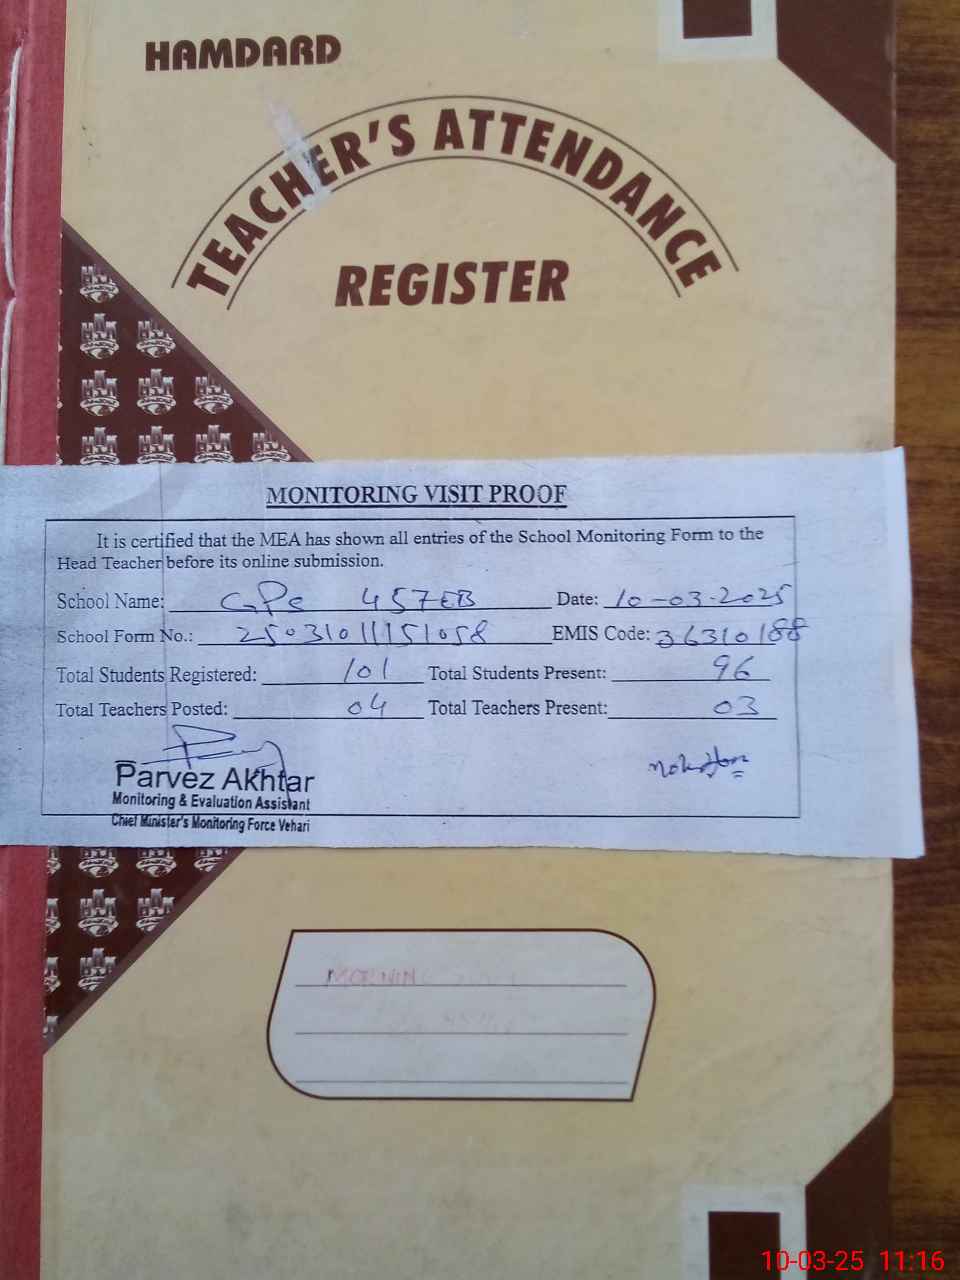 HAMDARD
TEACHER'S ATTENDANCE
REGISTER
MONITORING VISIT PROOF
It is certified that the MEA has shown all entries of the School Monitoring Form to the
Head Teacher before its online submission.
School Name: GPS 457EB Date: 10-03-2025
School Form No.: 25031011151058 EMIS Code: 36310188
Total Students Registered: 101 Total Students Present: 96
Total Teachers Posted: 04 Total Teachers Present: 03
Parvez Akhtar
Monitoring & Evaluation Assistant
Chief Minister's Monitoring Force Vehari
MORNIN
10-03-25 11:16